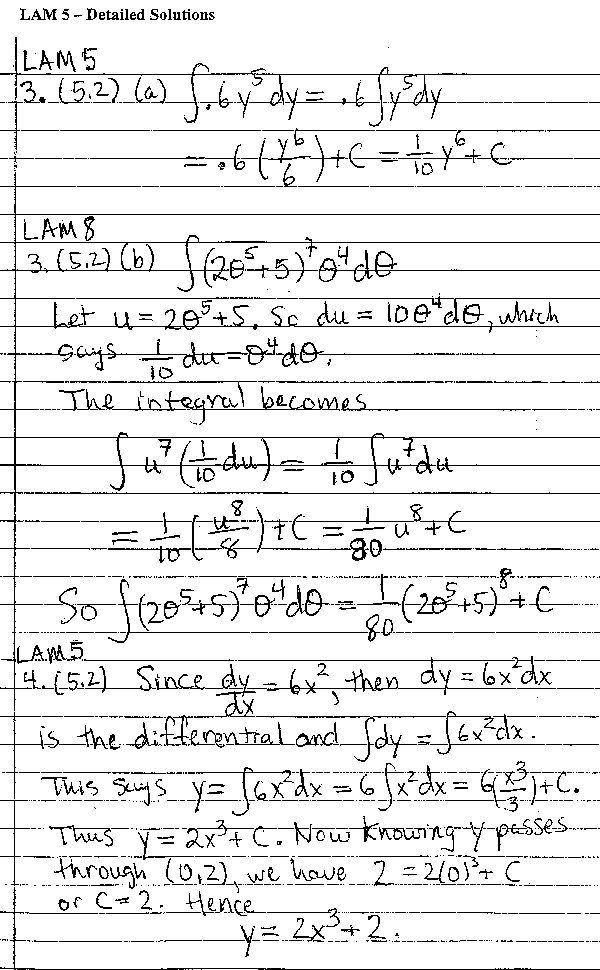 LAM 5 – Detailed Solutions
LAM 5
3. (5.2) (a) ∫.6y⁵dy = .6∫y⁵dy
= .6(y⁶/6) + C = 1/10 y⁶ + C
LAM 8
3. (5.2) (b) ∫(2θ⁵+5)⁷θ⁴dθ
Let u = 2θ⁵+5. So du = 10θ⁴dθ, which
says 1/10 du = θ⁴dθ.
The integral becomes
∫u⁷(1/10 du) = 1/10 ∫u⁷du
= 1/10 (u⁸/8) + C = 1/80 u⁸ + C
So ∫(2θ⁵+5)⁷θ⁴dθ = 1/80 (2θ⁵+5)⁸ + C
LAM 5
4. (5.2) Since dy/dx = 6x², then dy = 6x²dx
is the differential and ∫dy = ∫6x²dx.
This says y = ∫6x²dx = 6∫x²dx = 6(x³/3) + C.
Thus y = 2x³ + C. Now knowing y passes
through (0,2), we have 2 = 2(0)³ + C
or C = 2. Hence
y = 2x³ + 2.